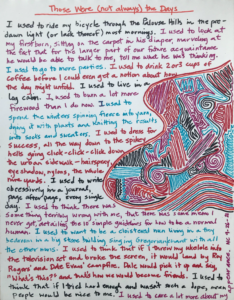 Those Were (not always) the Days
I used to ride my bicycle through the Palouse Hills in the pre-
dawn light (or lack thereof) most mornings. I used to look at
my firstborn, sitting on the carpet in his diaper, marveling at
the fact that for the larger part of our future acquaintance
he would be able to talk to me, tell me what he was thinking.
I used to go to more parties. I used to drink 2 or 3 cups of
coffee before I could even get a notion about how
the day might unfold. I used to live in a
log cabin. I used to burn a lot more
firewood than I do now. I used to
spend the winters spinning fleece into yarn,
dyeing it with plants and knitting the results
into socks and sweaters. I used to dress for
success, all the way down to the spider
heels going click-click-click down
the urban sidewalk - hairspray,
eye shadow, nylons, the whole
nine yards. I used to write
obsessively in a journal,
page after page, every single
day. I used to think there was
something terribly wrong with me, that there was some memo I
never got, detailing the simple guidelines for how to be a normal
human. I used to want to be a cloistered nun living in a tiny
bedroom in a big stone building singing Gregorian chant with all
the other nuns. I used to think that if I threw my alphabet into
the television set and broke the screen, it would land by Roy
Rogers' and Dale Evans' campfire. Dale would pick it up and say,
"What's this?" and that's how we would become friends. I used to
think that if I tried hard enough and wasn't such a dope, more
people would be nice to me. I used to care a lot more about my